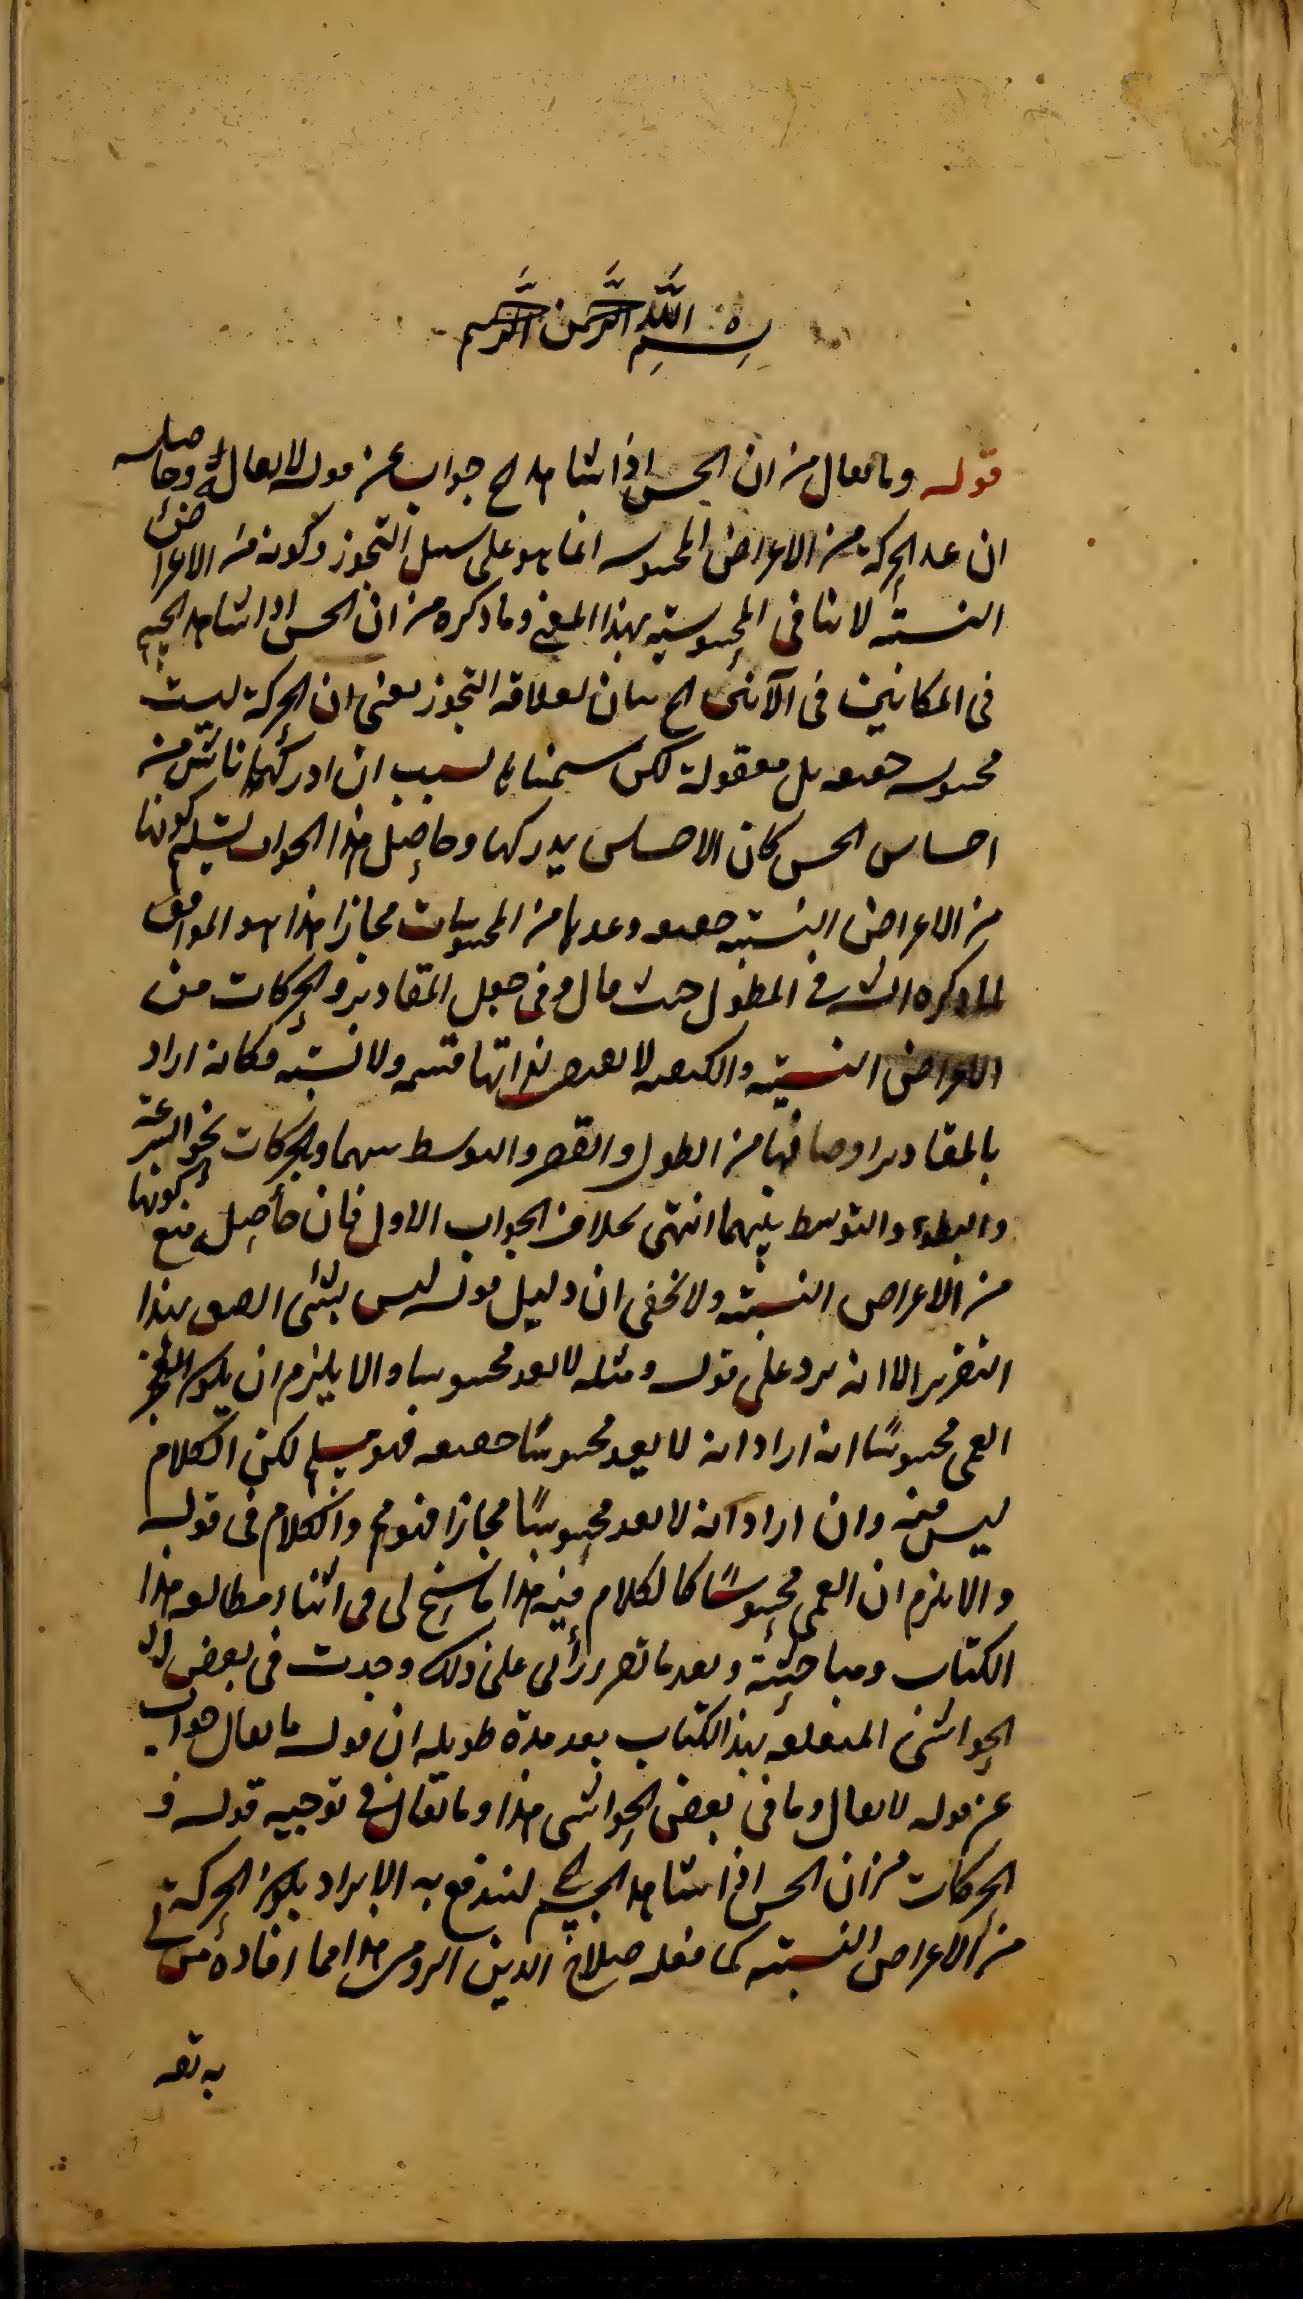 بسم الله الرحمن الرحيم
قوله وما يقال من ان الحس اذا شاهد الخ جواب عن قوله لا يقال وحاصله
ان عد الحركة من الاعراض المحسوسه انما هو على سبيل التجوز وكونه من الاعراض
النسبية لا ينافى المحسوسية بهذا المعنى وما ذكره من ان الحس اذا شاهد الجسم
فى المكانين فى الآنين الخ بيان لعلاقة التجوز يعنى ان الحركة ليست
محسوسه حقيقه بل معقولة لكن سمينا ها بسبب ان ادراكها ناش من
احساس الحس كان الاحساس يدركها وحاصل هذا الجواب تسليم كونها
من الاعراض النسبيه حقيقه وعدها من المحسوسات مجازا هذا هو الموافق
لما ذكره الش فى المطول حيث قال وفى جعل المقادير والحركات من
الاعراض النسبيه والكيفيه لا يقتضى لذاتها قسمه ولا نسبه فكانه اراد
بالمقادير اوصافها من الطول والقصر والتوسط بينهما وبالحركات نحو السرعة
والبطوء والتوسط بينهما انتهى بخلاف الجواب الاول فان حاصله منع كونها
من الاعراض النسبيه ولا يخفى ان دليل قوله ليس بشئ الصق بهذا
التقرير الا انه يرد على قوله ومثله لا يعد محسوسا والا يلزم ان يكون العجز
العمى محسوسًا انه اراد انه لا يعد محسوسًا حقيقه فهو مسلم لكن الكلام
ليس فيه وان اراد انه لا يعد محسوسًا مجازا فهو مم والكلام فى قوله
والا يلزم ان العمى محسوسًا كالكلام فيه هذا ما سنح لى فى اثناء مطالعه هذا
الكتاب ومباحثته وبعد ما تقرر رأى على ذلك وجدت فى بعض
الحواشى المتعلقه بهذا الكتاب بعد مدة طويله ان قوله ما يقال جواب
عن قوله لا يقال وما فى بعض الحواشى هذا وما يقال فى توجيه قوله و
الحركات من ان الحس اذا شاهد الجسم الخ ليندفع به الايراد بكون الحركة
من الاعراض النسبيه كما فعله صلاح الدين الرومى هذا مما افاده من
به تعه